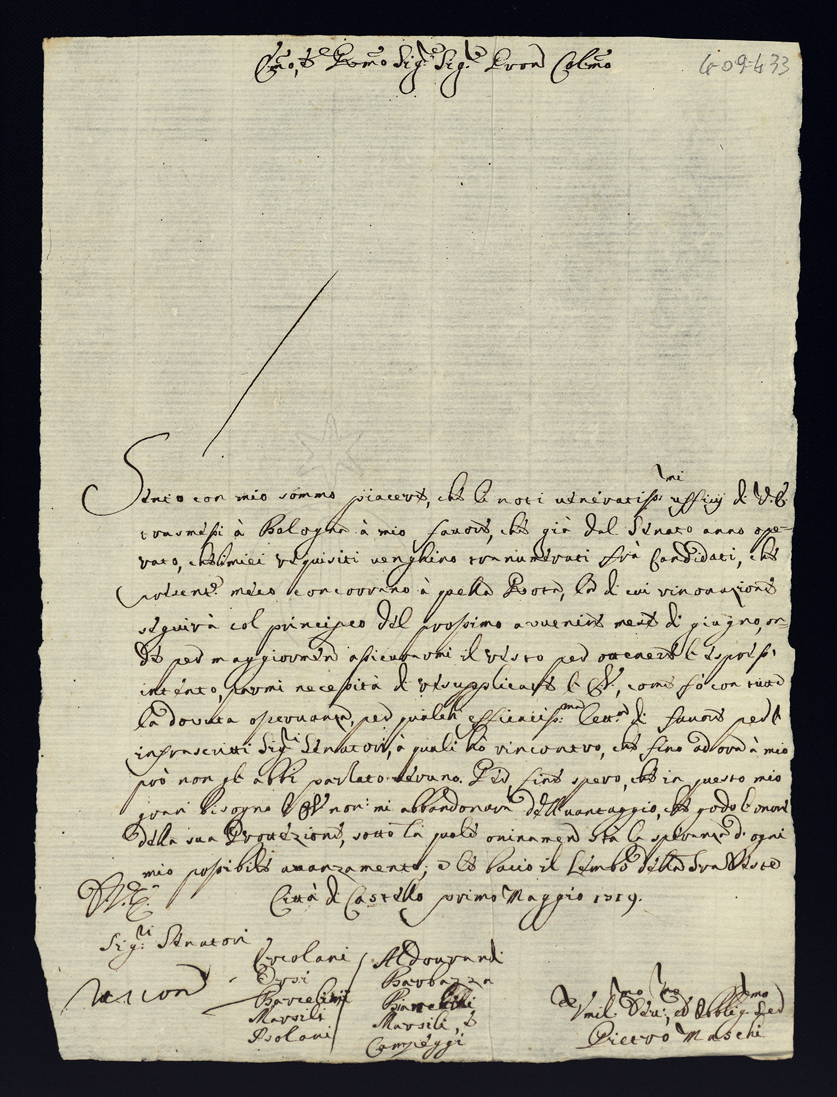 Emo, e Rmo Sig.r Sig.r Pron Colmo
409-433
Sento con mio sommo piacere, che le noti veneratiss.mi ufficij di V.E.
trasmessi à Bologna à mio favore, che già dal Senato anno ope-
rato, che miei requisiti venghino trannumerati frà Candidati, che
present.e meco concorrano à quella Rota, la di cui rinovazione
seguirà col principio del prossimo avvenire mese di giugno, on-
de per maggiormen assicurarmi il resto per ottenere l'espress.
intento, parmi necessità di resupplicare l'E.V., come fò con tutta
la dovuta osservanza, per qualch efficaciss.ma lett.ra di favore per l
infrascritti Sig.ri Senatori, à quali hò rincontro, che fino ad ora à mio
prò non gli abbi parlato veruno. Per fine spero, che in questo mio
gran bisogno l'E.V. non mi abbandonarà dell vantaggio, che godo l'onore
della sua Protezione, sotto la quale oninamen stà la speranza d'ogni
mio possibile avanzamento, e le bacio il Lembo della Sra Veste
D.V.E.
Città di Castello primo Maggio 1719.
Sig.ri Senatori
Ercolani
Orsi
Marsili
Isolani
Aldourandi
Barbazza
Bianchini
Marsili, e
Campeggi
Umil.mo Dev.mo, ed Obblig.mo Ser
Pietro Maschi